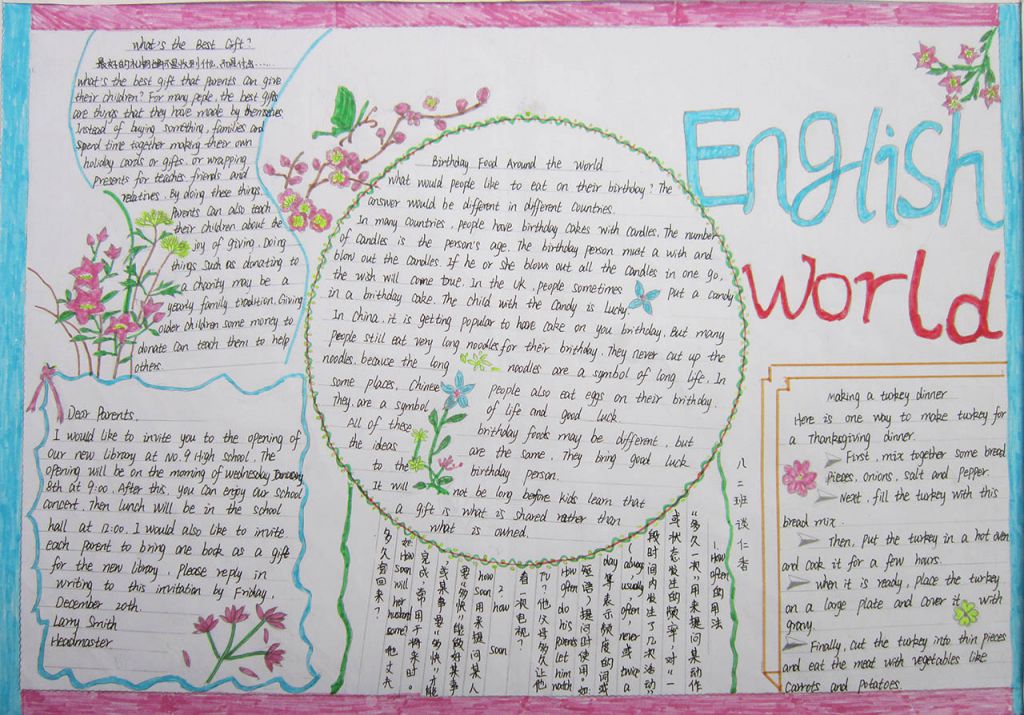 What's the Best Gift?
what's the best gift that parents can give
their children? For many peple, the best gifts
are things that they have made by themselves
Instead of buying something, families and
spend time together making their own
holiday cards or gifts. or wrapping
presents for teaches friends and
relatives. By doing these things.
Parents can also teach
their children about the
joy of giving. Doing
things such as donating to
a charity may be a
yearly family tradition. Giving
older children some money to
donate can teach them to help
others.
Dear Parents.
I would like to invite you to the opening of
our new Library at No.9 High school. The
opening will be on the morning of wednesday
8th at 9:00. After this, you can enjoy our school
concert. Then lunch will be in the school
hall at 12:00. I would also like to invite
each parent to bring one book as a gift
for the new library. Please reply in
writing to this invitation by Friday,
December 20th.
Larry Smith
Headmaster
Birthday Food Around the World
what would people like to eat on their birthday? The
answer would be different in different countries.
In many countries, people have birthday cakes with candles. The number
of candles is the person's age. The birthday person must a wish and
blow out the candles. If he or she blows out all the candles in one go,
the wish will come true. In the UK, people sometimes put a candy
in a birthday cake. The child with the candy is lucky.
In China, it is getting popular to have cake on you birthday. But many
people still eat very long noodles for their birthday. They never cut up the
noodles. because the long noodles are a symbol of long life. In
some places, Chinese people also eat eggs on their birthday.
They are a symbol of life and good luck.
All of these birthday foods may be different, but
the ideas are the same. They bring good luck
to the birthday person.
It will not be long before kids learn that
a gift is what is shared rather than
what is owned.
English
World
making a turkey dinner
Here is one way to make turkey for
a Thanksgiving dinner.
First, mix together some bread
pieces, onions, salt and pepper.
Next, fill the turkey with this
bread mix.
Then, put the turkey in a hot oven
and cook it for a few hours.
when it is ready, place the turkey
on a large plate and cover it with
gravy.
Finally, cut the turkey into thin pieces
and eat the meat with vegetables like
carrots and potatoes.
八二班 谈仁者
1. How often的用法
"多久一次",用来提问某动作
或状态发生的频率,对"一
段时间内发生了几次活动"
(always, usually, often, never或twice a
day等表示频度的词或
短语)提问时使用。如
How often do his parents let him watch
TV? 他父母多久让他
看一次电视?
2. how soon
how soon用来提问某人
要"多快"能做好某事
或某事要"多快"才能
完成,常用于将来时。
How soon will her husband
多久后回来?